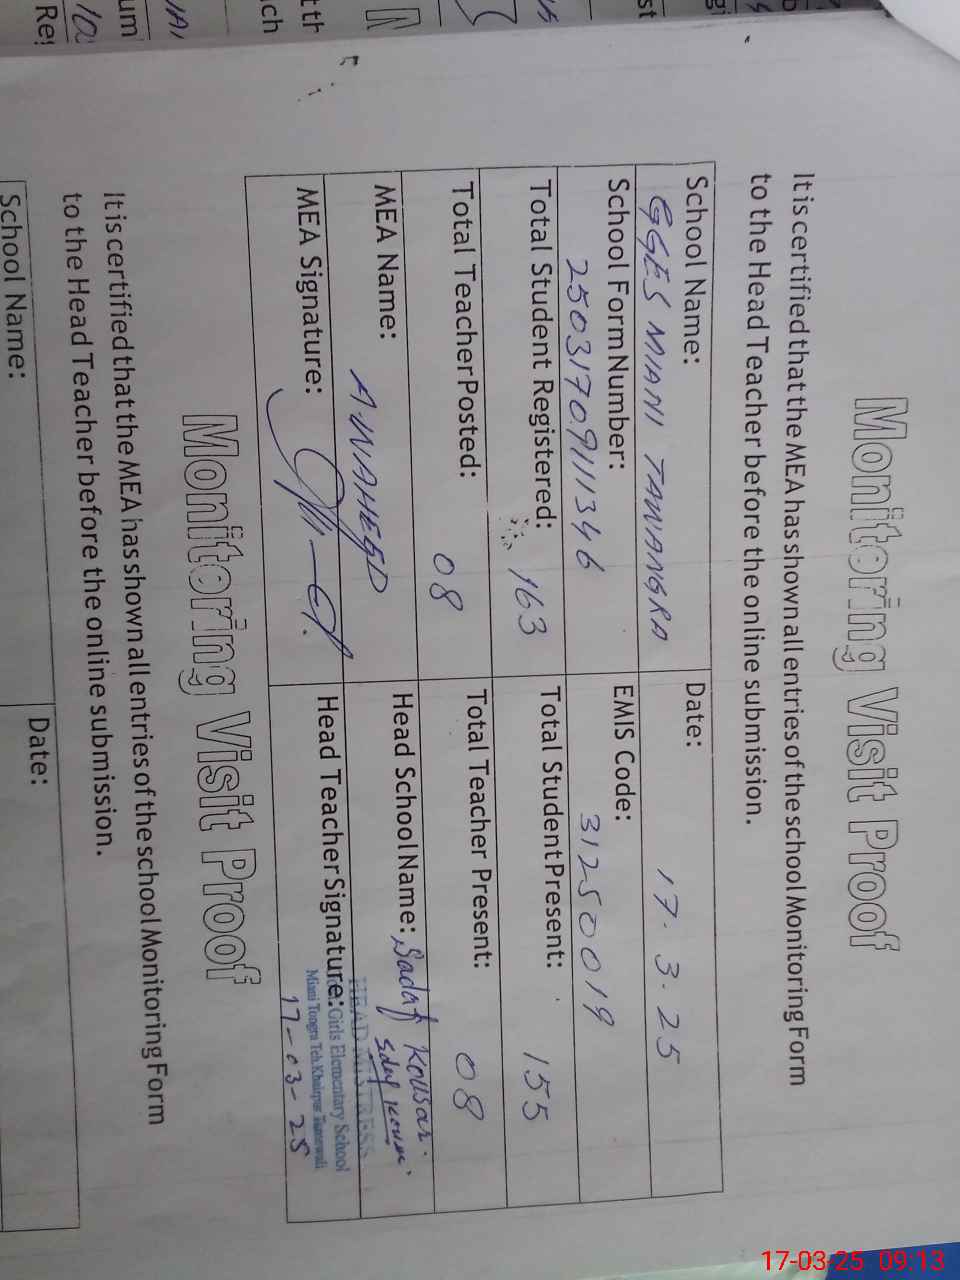 Monitoring Visit Proof
It is certified that the MEA has shown all entries of the school Monitoring Form
to the Head Teacher before the online submission.
School Name: Date:
GGES MIANI TAWANGRA 17.3.25
School Form Number: EMIS Code:
25031709111346 31250019
Total Student Registered: Total Student Present:
163 155
Total Teacher Posted: Total Teacher Present:
08 08
MEA Name: Head School Name: Sadaf Kousar
A. WAHEED
MEA Signature: Head Teacher Signature:
HEAD MISTRESS
Girls Elementary School
Miani Tongra Teh. Khairpur Tamewali
17-03-25
Monitoring Visit Proof
It is certified that the MEA has shown all entries of the school Monitoring Form
to the Head Teacher before the online submission.
School Name: Date:
17-03-25 09:13